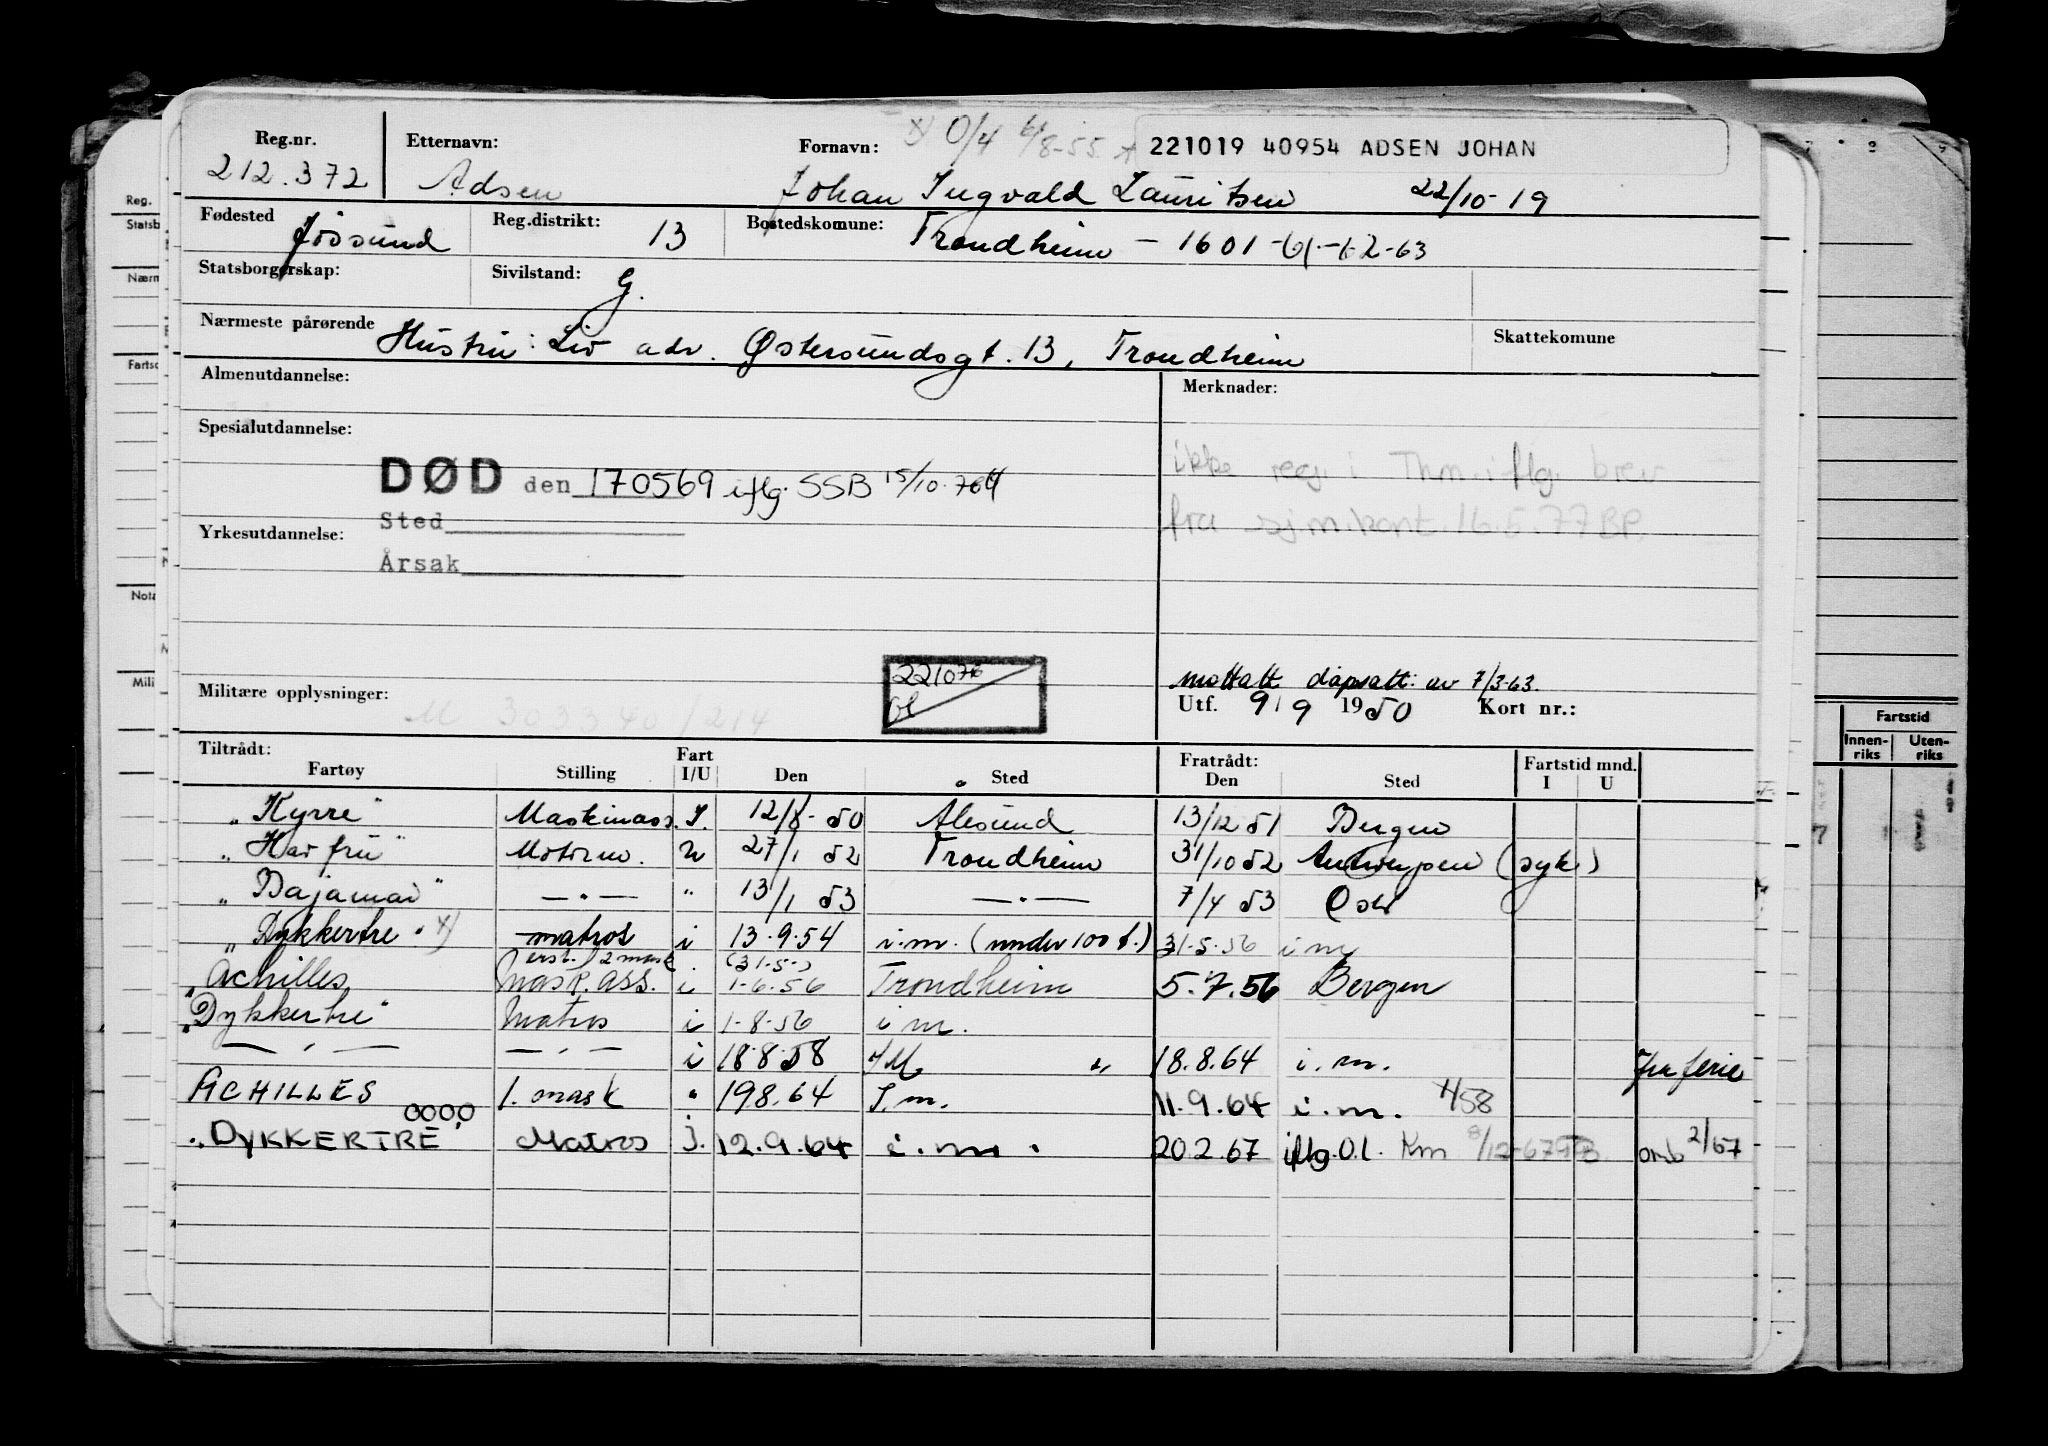 O/4 6/8-55
221019 40954 ADSEN JOHAN
Reg.nr. Etternavn: Fornavn:
212.372 Adsen Johan Ingvald Lauritsen 22/10-19
Fødested Jøssund Reg.distrikt: 13 Bostedskomune: Trondheim - 1601-61-62-63
Statsborgerskap: Sivilstand: G.
Nærmeste pårørende Hustru: Liv adr. Østersundsgt. 13, Trondheim Skattekomune
Almenutdannelse: Merknader:
Spesialutdannelse: ikke reg. i Thm. iflg. brev
DØD den 170569 iflg. SSB 15/10.76
fra sjm.kont. 16.5.77 BP.
Sted
Yrkesutdannelse:
Årsak
221076
mottatt dåpsatt: av 7/3-63.
Militære opplysninger: M 303340/214 Utf. 9/9 1950 Kort nr.:
Tiltrådt: Fart Fratrådt: Fartstid mnd.
Fartøy Stilling I/U Den Sted Den Sted I U
"Kyrre" Maskinass. I. 12/8-50 Ålesund 13/12 51 Bergen
"Havfru" Motorm. u 27/1 52 Trondheim 31/10 52 Antwerpen (syk)
"Bajamar" —"— " 13/1 53 —"— 7/4 53 Oslo
"Dykkertre" x) matros i 13.9.54 i.m. (under 100 t.) 31.5.56 i m
erst. 2 mask (31.5.)
"Achilles Mask.ass. i 1-6.56 Trondheim 5.7.56 Bergen
"Dykkertre" Matros i 1-8-56 i m.
—"— —"— i 18.8.58 i M " 18.8.64 i.m. fra ferie
ACHILLES 1. mask " 198.64 I.m. 11.9.64 i.m. 4/58
"DYKKERTRE" Matros i. 12.9.64 i.m. 20.2.67 iflg.O.l. Km 8/12-67 omb 2/67
Reg.
Statsb
Nærm
Fartsc
Nota
Mili
Fartstid
Innen- Uten-
riks riks